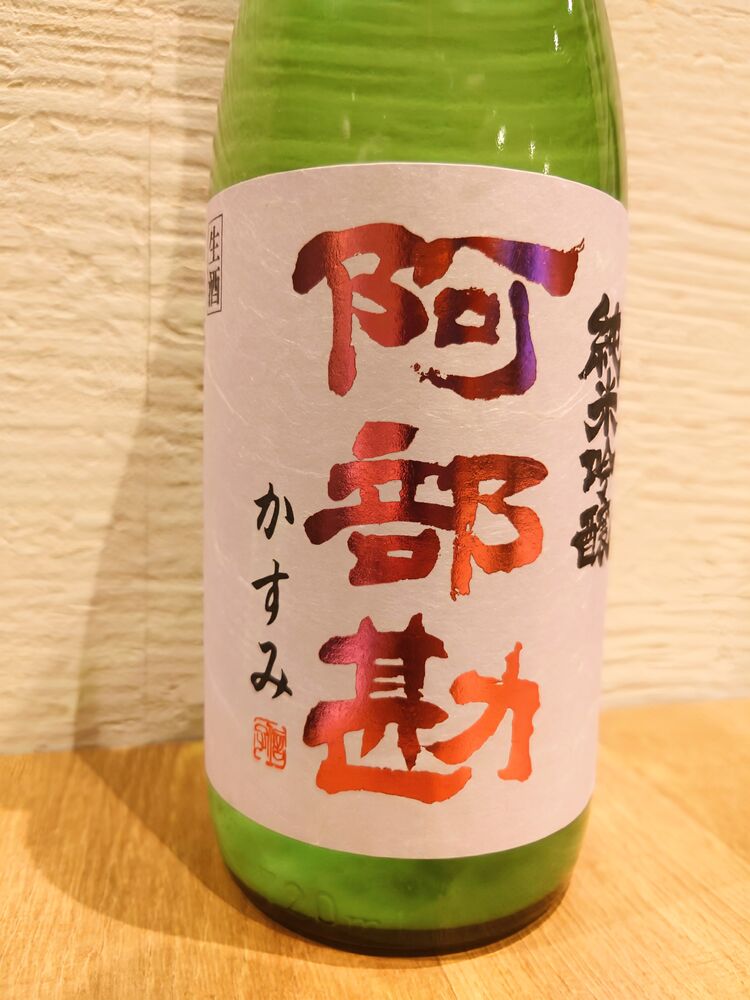 純米吟醸
阿部勘
かすみ
生酒